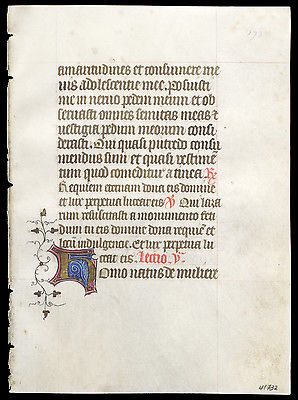 amaritudines et consumere me
vis adolescentie mee. Posuisti
me in nervo pedem meum et ob
servasti omnes semitas meas et
vestigia pedum meorum consi
derasti. Qui quasi putredo consu
mendus sum et quasi vestimē
tum quod comeditur a tinea. R̷
Requiem eternam dona eis domine
et lux perpetua luceat eis V̷ Qui laza
rum resuscitasti a monumento feti
dum tu eis domine dona requiē et
locū indulgencie. Et lux perpetua lu
ceat eis. Lectio v.
Homo natus de muliere
41732